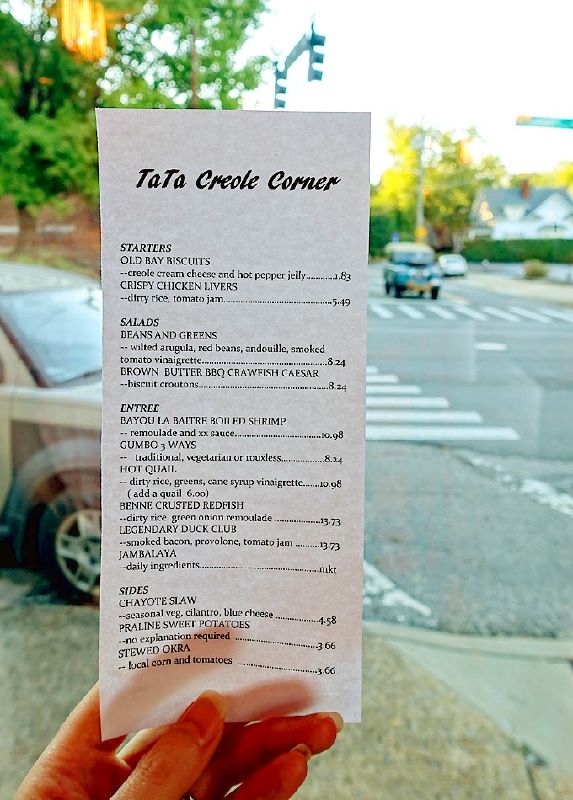 TaTa Creole Corner
STARTERS
OLD BAY BISCUITS
--creole cream cheese and hot pepper jelly............1.83
CRISPY CHICKEN LIVERS
--dirty rice, tomato jam..................................5.49
SALADS
BEANS AND GREENS
-- wilted arugula, red beans, andouille, smoked
tomato vinaigrette.......................................8.24
BROWN BUTTER BBQ CRAWFISH CAESAR
--biscuit croutons.........................................8.24
ENTREE
BAYOU LA BAITRE BOILED SHRIMP
-- remoulade and xx sauce...........................10.98
GUMBO 3 WAYS
-- traditional, vegetarian or rouxless................8.24
HOT QUAIL
-- dirty rice, greens, cane syrup vinaigrette.....10.98
( add a quail 6.00)
BENNE CRUSTED REDFISH
--dirty rice green onion remoulade ................13.73
LEGENDARY DUCK CLUB
--smoked bacon, provolone, tomato jam .........13.73
JAMBALAYA
--daily ingredients.........................................mkt
SIDES
CHAYOTE SLAW
--seasonal veg, cilantro, blue cheese ...............4.58
PRALINE SWEET POTATOES
--no explanation required ............................3.66
STEWED OKRA
-- local corn and tomatoes ...........................3.66